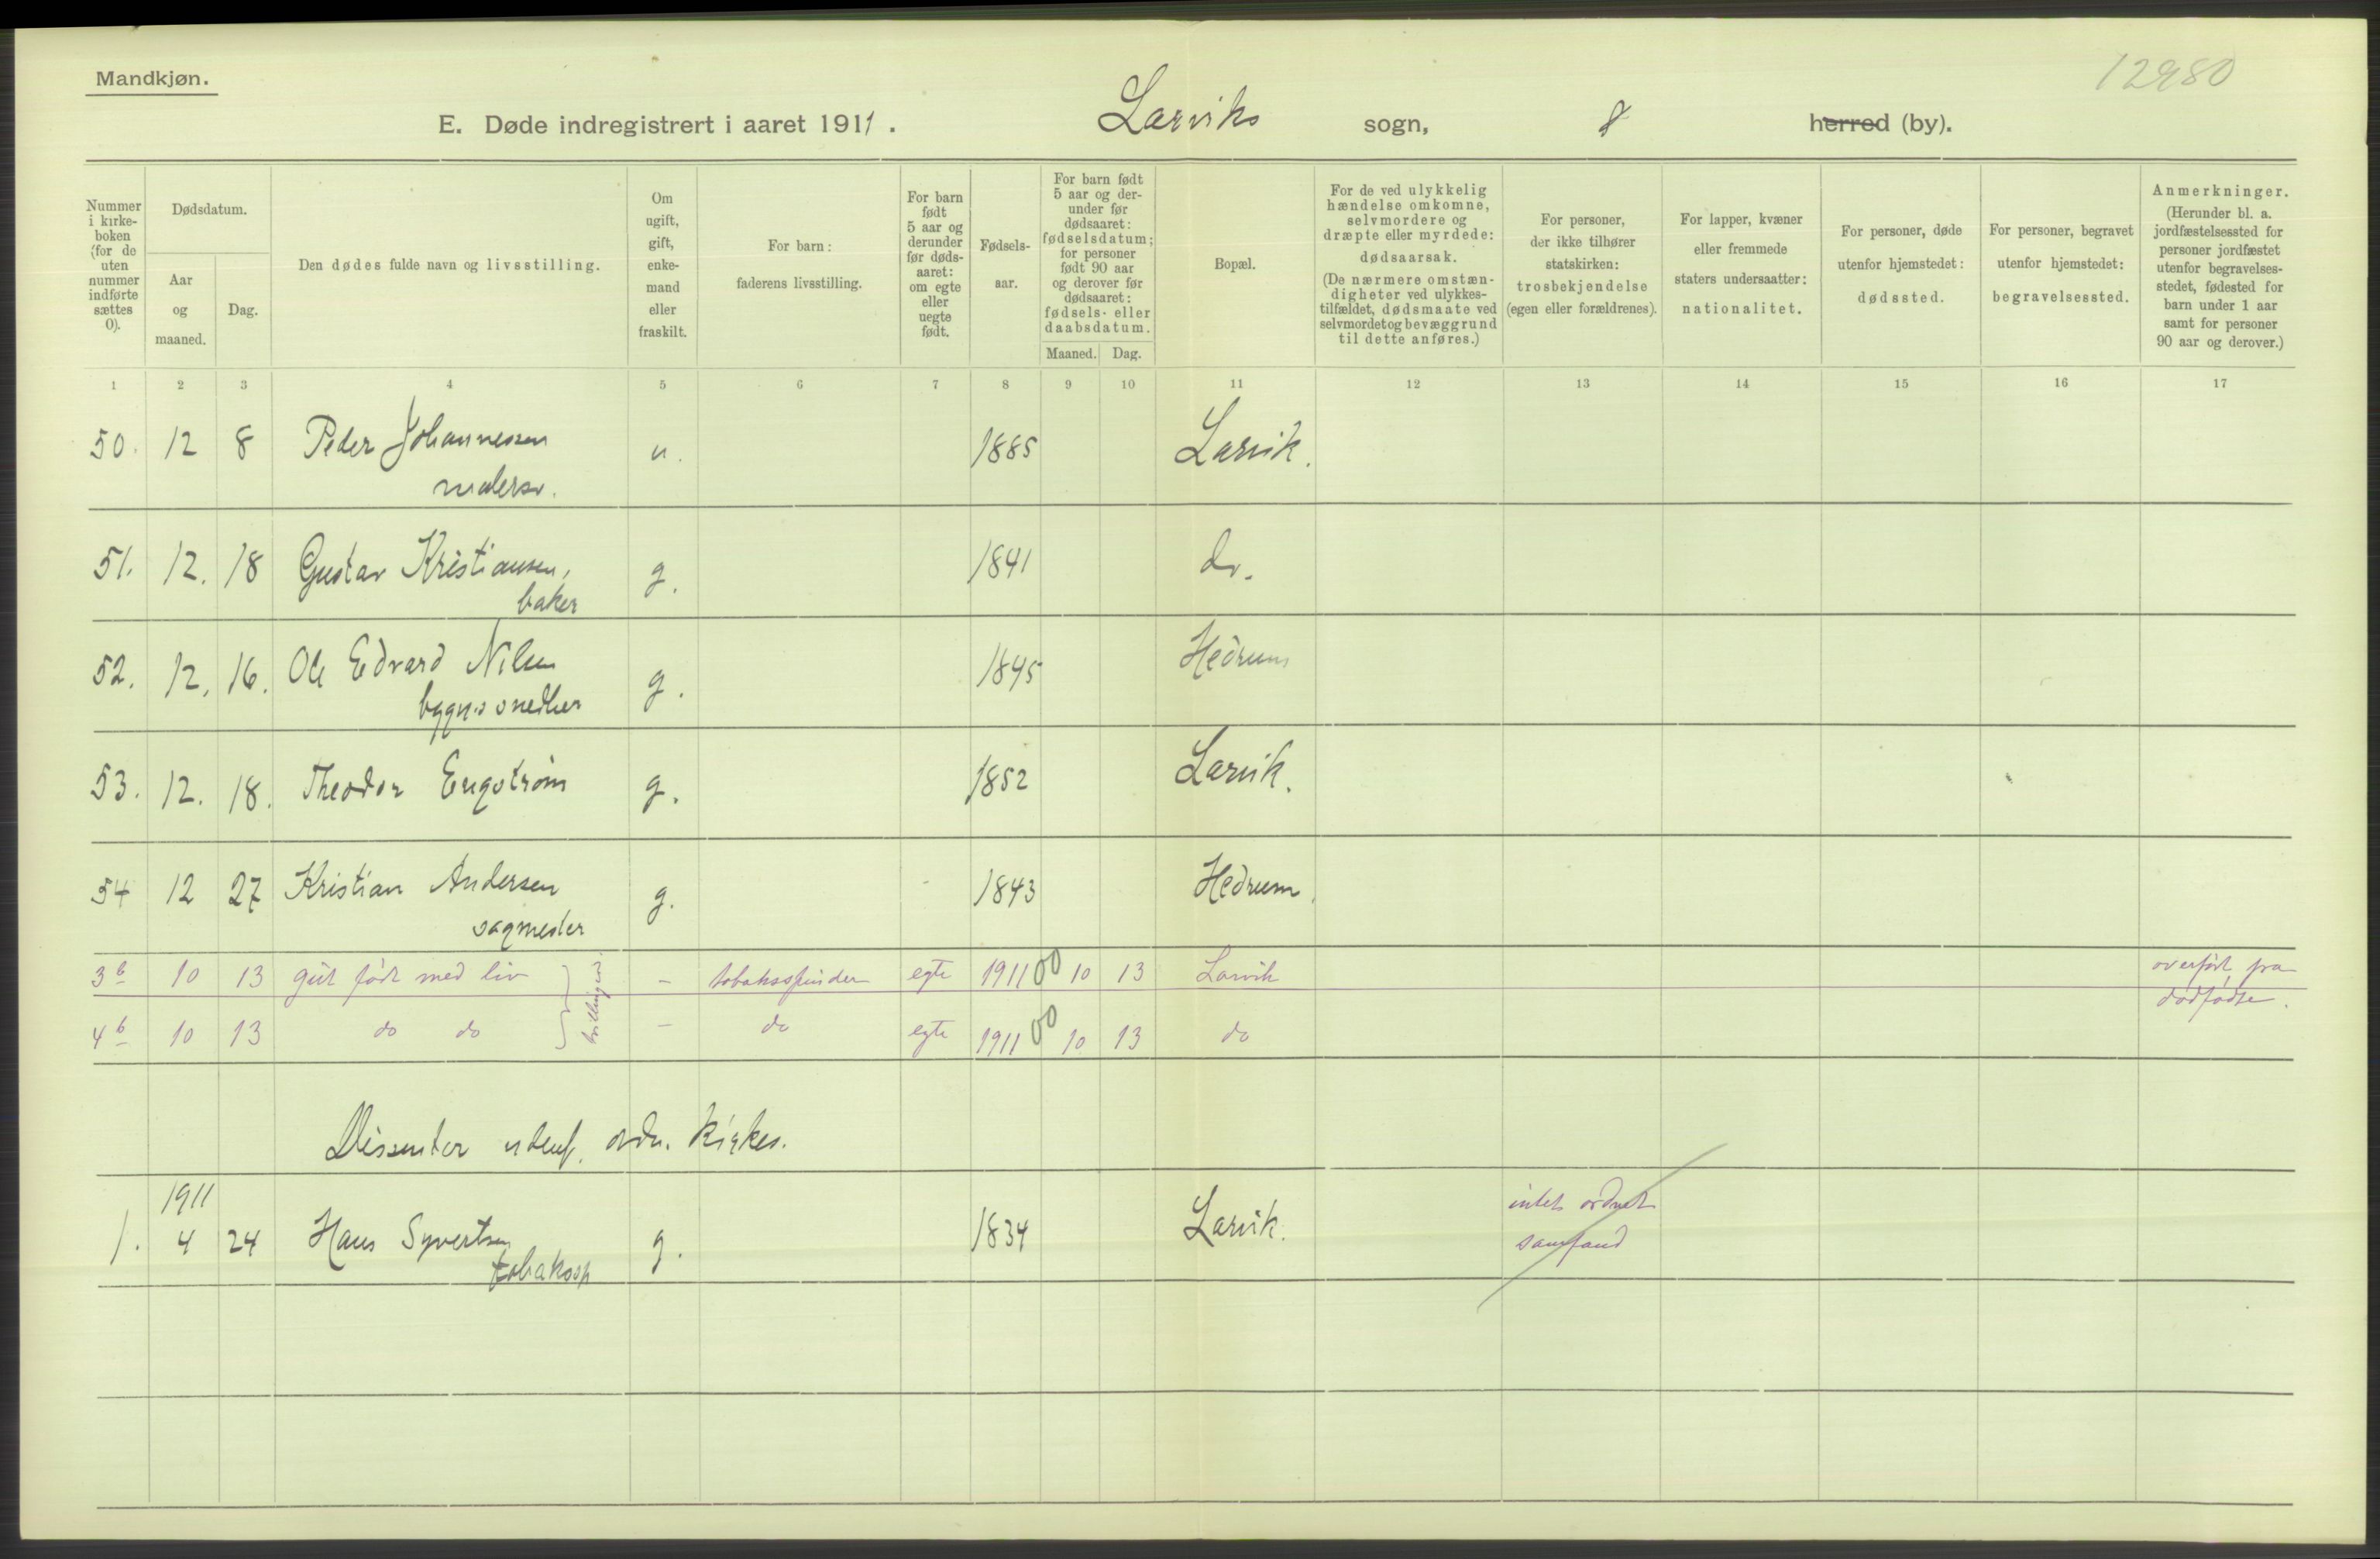 Mandkjøn.
12980
E. Døde indregistrert i aaret 1911. Larviks sogn, herred (by).
Nummer i kirkeboken (for de uten nummer indførte sættes 0).
Dødsdatum.
Aar og maaned.
Dag.
Den dødes fulde navn og livsstilling.
Om ugift, gift, enkemand eller fraskilt.
For barn: faderens livsstilling.
For barn født 5 aar og derunder før dødsaaret: om egte eller uegte født.
Fødselsaar.
For barn født 5 aar og derunder før dødsaaret: fødselsdatum; for personer født 90 aar og derover før dødsaaret: fødsels- eller daabsdatum.
Maaned. Dag.
Bopæl.
For de ved ulykkelig hændelse omkomne, selvmordere og dræpte eller myrdede: dødsaarsak.
(De nærmere omstændigheter ved ulykkestilfældet, dødsmaate ved selvmordet og bevæggrund til dette anføres.)
For personer, der ikke tilhører statskirken: trosbekjendelse (egen eller forældrenes).
For lapper, kvæner eller fremmede staters undersaatter: nationalitet.
For personer, døde utenfor hjemstedet: dødssted.
For personer, begravet utenfor hjemstedet: begravelsessted.
Anmerkninger.
(Herunder bl. a. jordfæstelsessted for personer jordfæstet utenfor begravelsesstedet, fødested for barn under 1 aar samt for personer 90 aar og derover.)
1 2 3 4 5 6 7 8 9 10 11 12 13 14 15 16 17
50. 12 8 Peder Johannessen u. 1885 Larvik.
malersv.
51. 12. 18 Gustav Kristiansen, g. 1841 do.
baker
52. 12. 16. Ole Edvard Nilsen g. 1845 Hedrum
bygn.snedker
53. 12. 18. Theodor Engström g. 1852 Larvik.
54 12 27 Kristian Andersen g. 1843 Hedrum
sagmester
3b 10 13 gut født med liv tvillinger. - tobaksspinder egte 1911 00 10 13 Larvik overført fra
dødfødse.
4b 10 13 do do - do egte 1911 00 10 13 do
Dissenter utenf. ordn. kirkes.
1911
1. 4 24 Hans Syvertsen g. 1834 Larvik. intet ordnet
tobakssp samfund